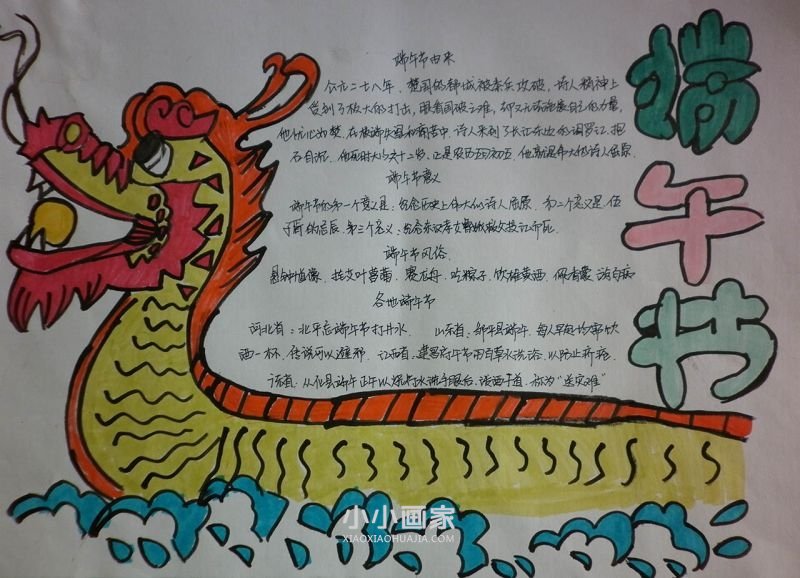 端午节
端午节由来
公元二七八年，楚国的郢城被秦兵攻破，诗人精神上
受到了极大的打击，眼看国破之难，却又无法施展自己的力量，
他忧心如焚，在极端失望和痛苦中，诗人来到了长江东边的汨罗江，抱
石自沉，他死时大约六十二岁，正是农历五月初五，他就是伟大的诗人屈原
端午节意义
端午节的第一个意义是：纪念历史上伟大的诗人屈原，第二个意义是伍
子胥的忌辰，第三个意义：纪念东汉孝女曹娥救父投江而死
端午节风俗
悬钟馗像，挂艾叶菖蒲，赛龙舟，吃粽子，饮雄黄酒，佩香囊，游百病
各地端午节
河北省：北平忌端午节打井水 山东省：邹平县端午，每人早起均需饮
酒一杯，传说可以避邪 江西省：建昌府午节用百草水洗浴，以防止疥疮
从化县端午正午以烧符水洗手眼后，泼洒于道，称为“送灾难”
小小画家
XIAOXIAOHUAJIA.COM